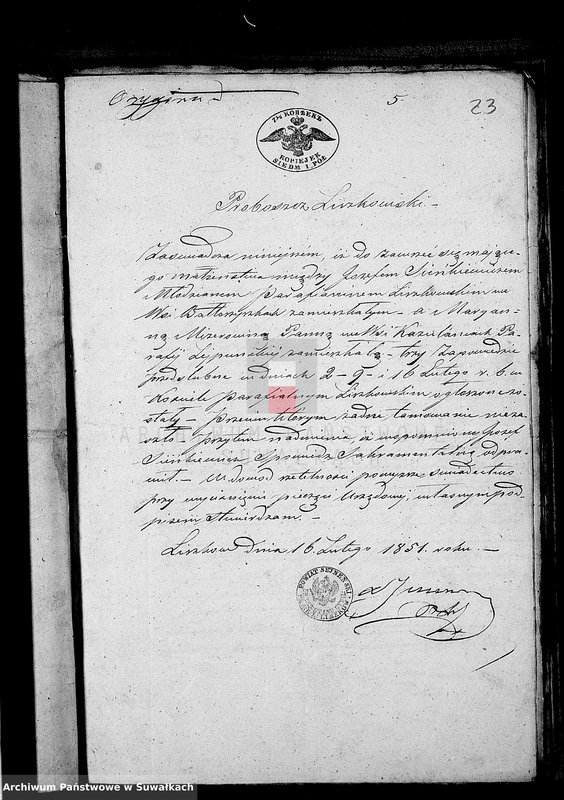 Oryginał
5
23
7½ КОПѢЕКЪ
KOPIEJEK
SIEDM I PÓŁ
Proboszcz Liszkowski. –
Zaświadcza niniejszém, iż do zawrzeć się mające-
go małżeństwa między Józefem Sieńkiewiczem
Młodzianem Parafianinem Liszkowskim we
Wsi zamieszkałym – a Maryan-
ną Mizerowną Panną we Wsi Pa-
rafij zamieszkałą – trzy Zapowiedzie
przedślubne w dniach 2 – 9 – i 16 Lutego r. b. w
Kosciele Parafialnym Liszkowskim ogłoszone zo-
stały – Przeciw którym żadne tamowanie nieza-
szło. przytém nadmienia iż wspomniony Józef
Sieńkiewicz Spowiedź Sakramentalną odpra-
wił. – W dowód rzetelności powyższe świadectwo
przy wyciśnięciu pieczęci Urzędowéj, własnym pod-
pisem stwierdzam. –
Liszków dnia 16 Lutego 1851 roku. –
POWIAT SEJNEŃSKI
Archiwum Państwowe w Suwałkach